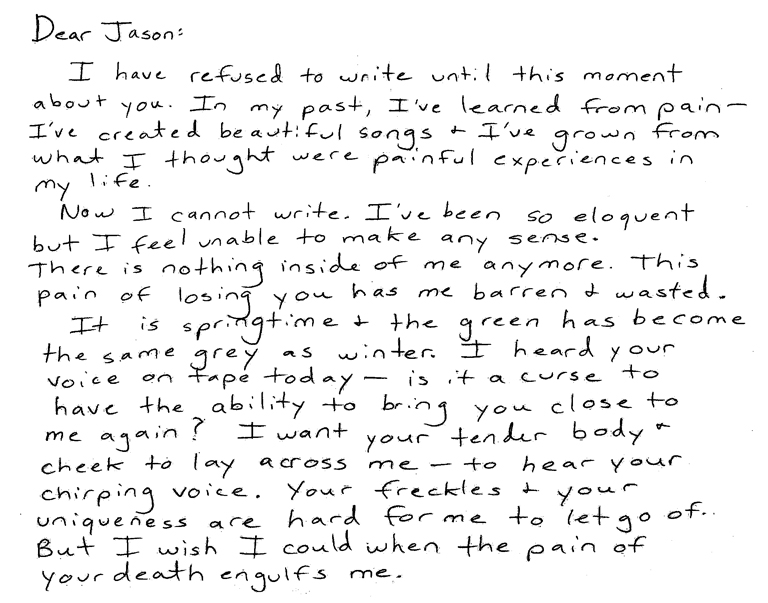 Dear Jason:
I have refused to write until this moment
about you. In my past, I've learned from pain—
I've created beautiful songs + I've grown from
what I thought were painful experiences in
my life.
Now I cannot write. I've been so eloquent
but I feel unable to make any sense.
There is nothing inside of me anymore. This
pain of losing you has me barren + wasted.
It is springtime + the green has become
the same grey as winter. I heard your
voice on tape today — is it a curse to
have the ability to bring you close to
me again? I want your tender body +
cheek to lay across me — to hear your
chirping voice. Your freckles + your
uniqueness are hard for me to let go of..
But I wish I could when the pain of
your death engulfs me.